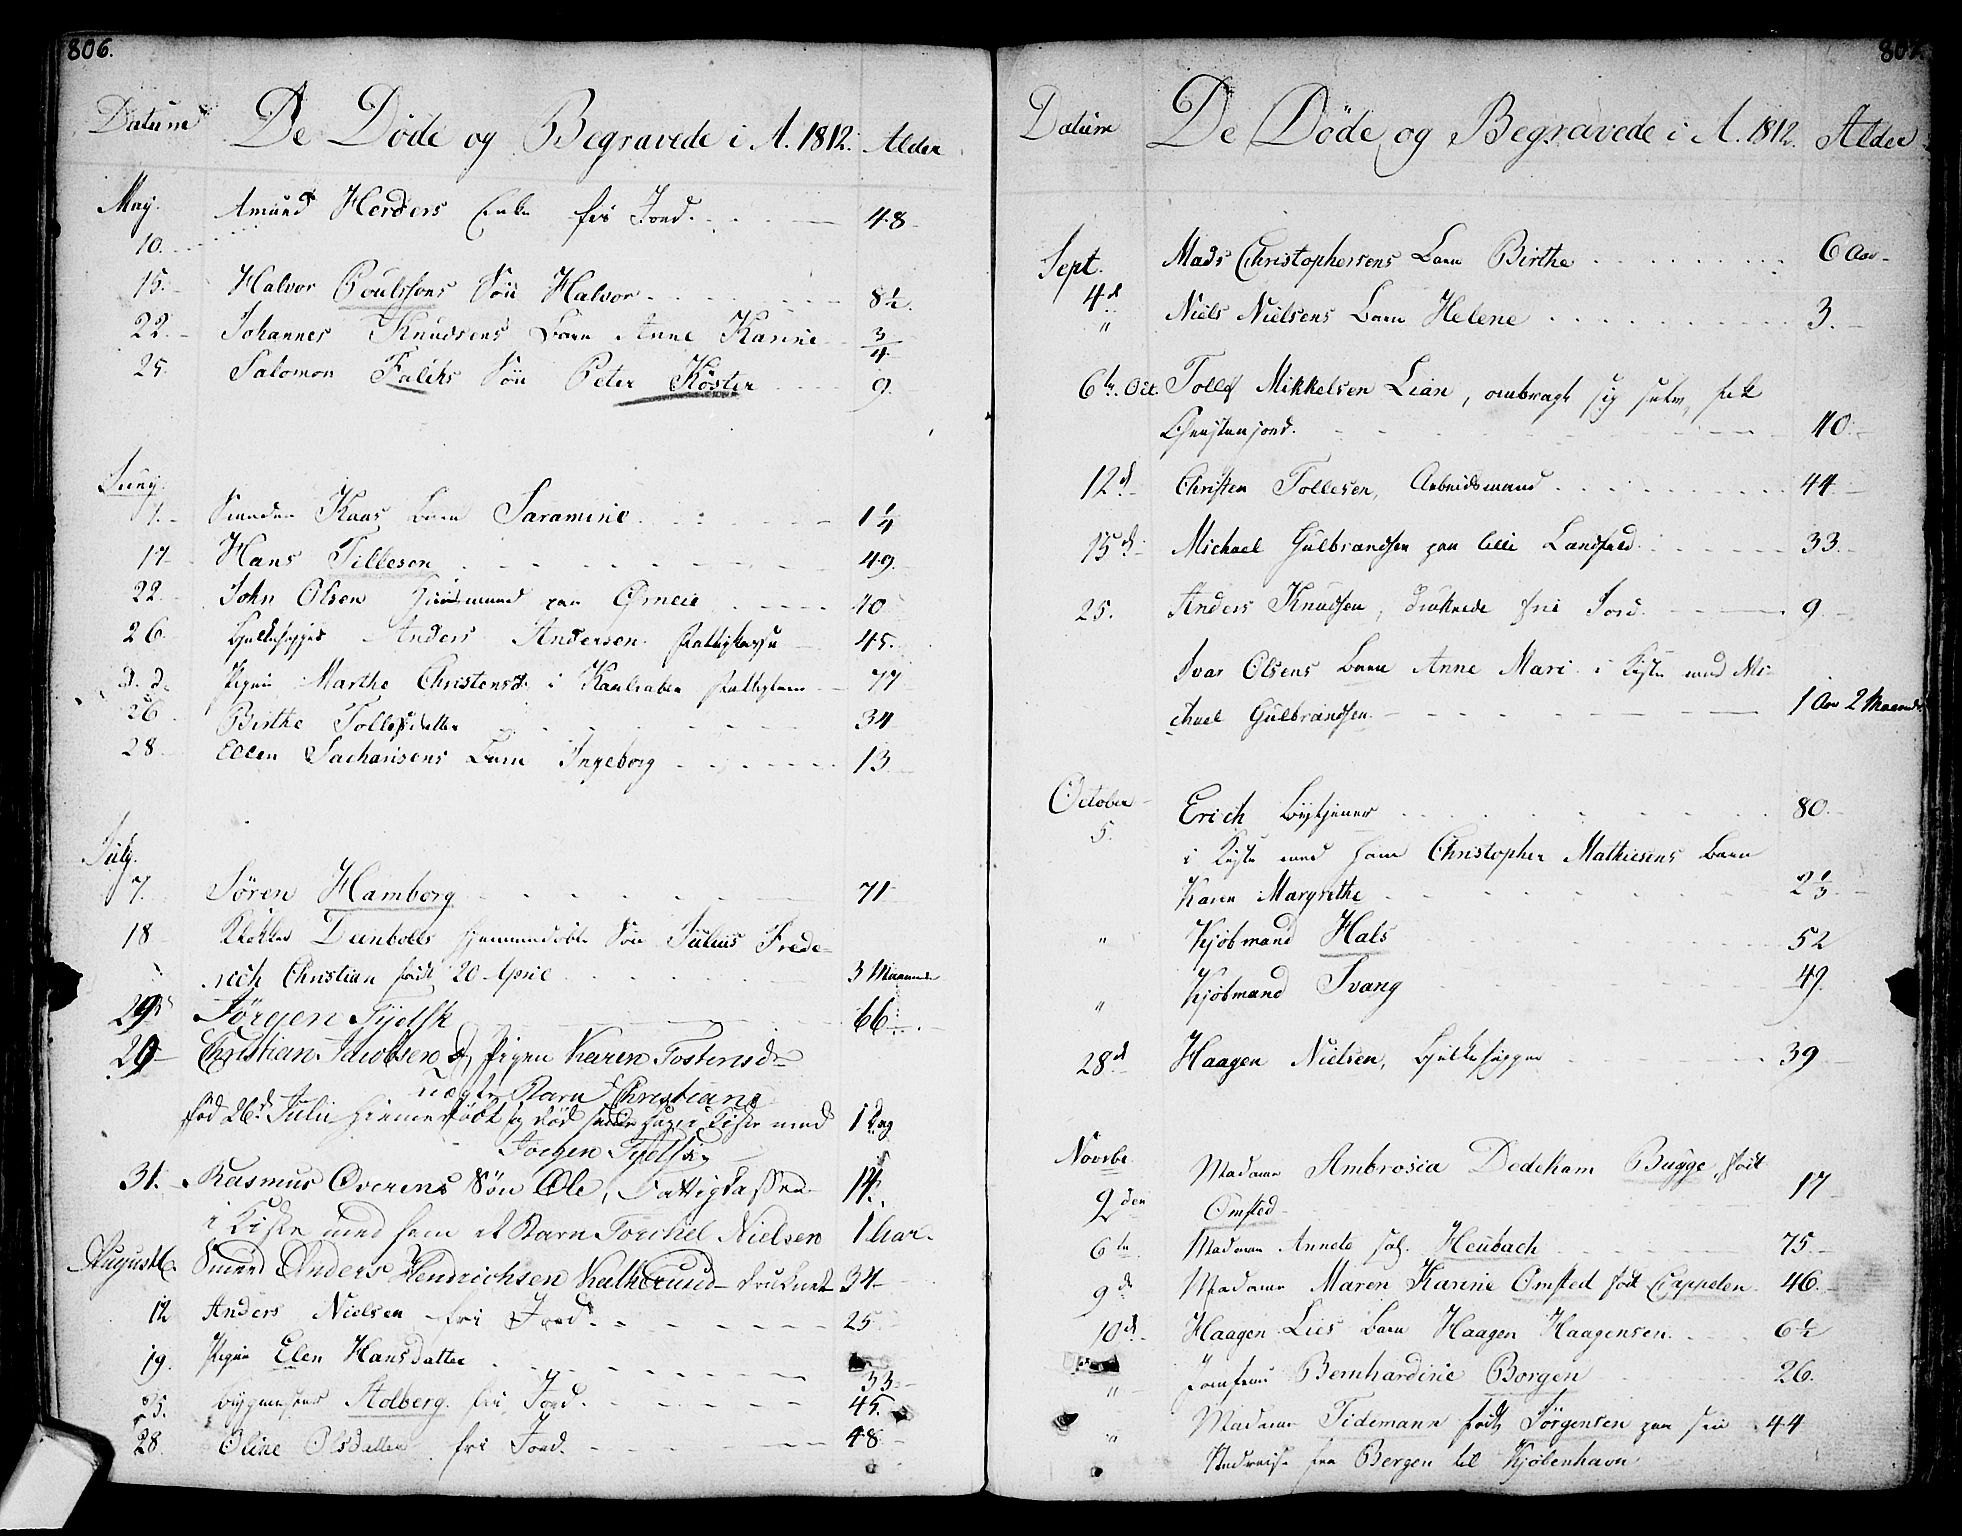 806.
Datum De Døde og Begravede i A. 1812. Alder
May. Amund Herders Enke fri Jord. 48
10.
15. Halvor Poulssons Søn Halvor 8½.
22. Johannes Knudsens Barn Anne Karine ¾
25. Salomon Falchs Søn Peter Köster 9.
Juny.
7. Kaas Barn Saramine 1¼
17 Hans Tillesen 49.
22 John Olsen Huusmand paa 40
26. Anders Andersen 45.
d. d. Pigen Marthe Christensd. i 77
26 Birthe Tollefsdatter 34
28 Ellen Sacharisens Barn Ingeborg 13
July.
7. Sören Hamborg 71
18 Klokker Dunbolls hjemmedøbte Søn Julius Frede-
rich Christian født 20 April 3 Maaneder
29 Jörgen Tjelsk 66
29 Christian Jacobsen og Pigen Karen Tostensd.
uægte Barn Christiane
fød 26d Julii hiemmedöbt og död Kiste med 1 Dag
Jorgen Tjelsk
31. Rasmus Overens Søn Ole, Fattigkassen 14.
i Kiste med ham et Barn Torchel Nielsen 1 Aar.
August Smed Anders Hendrichsen druknet 34
12 Anders Nielsen fri Jord. 25
19. Pigen Elen Hansdatter 33
25. Bygmester Stolberg fri Jord. 45.
28. Oline Olsdatter fri Jord. 48
807.
Datum De Døde og Begravede i A. 1812. Alder
Sept. Mads Christophersens Barn Birthe 6 Aar
4d
" Niels Nielsens Barn Helene 3.
6te Oct. Tollef Mikkelsen Lian, ombragt sig selv, fik
Christenjord. 40.
12d Christen Tollesen, Arbeidsmand 44
15d Michael Gulbrandsen paa lille Landfald 33.
25. Anders Knudsen, druknede fri Jord 9
Ivar Olsens Barn Anne Mari i Kiste med Mi-
chael Gulbrandsen 1 Aar 2 Maaneder
October Erich Bytjener 80.
5.
i Kiste med ham Christopher Mathiesens Barn
Karen Margrethe 2⅓
" Kjøbmand Hals 52
" Kjøbmand Svang 49.
28d Haagen Nielsen, 39
Novbr. Madame Ambrosia Dedekam Bugge, født
2den Omsted 17
6te Madame Annete sal. Heubach 75
9d Madame Maren Karine Omsted født Cappelen 46.
10d Haagen Lies Barn Haagen Haagensen 6½
" Jomfru Bernhardine Borgen 26.
" Madame Tidemann født Jörgensen paa sin 44
fra Bergen til Kjøbenhavn